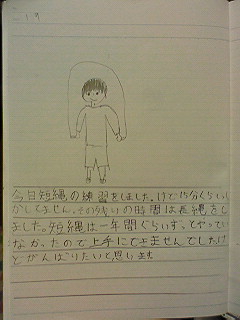 19
今日短縄の練習をしました。けど15分ぐらいし
かしてません。その外の時間は長縄をし
ました。短縄は一年間ぐらいずっとやってい
なかったので上手にできませんでしたけ
どがんばりたいと思います